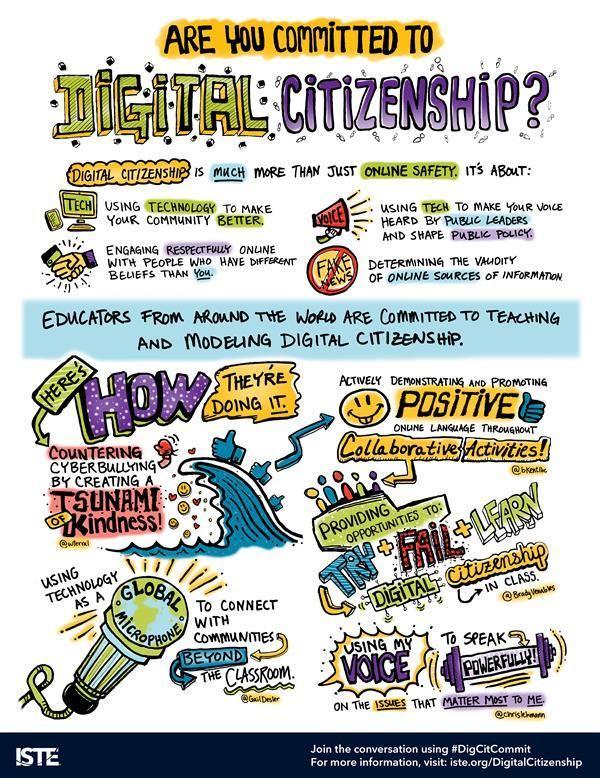 ARE YOU COMMITTED TO
DIGITAL CITIZENSHIP?
DIGITAL CITIZENSHIP IS MUCH MORE THAN JUST ONLINE SAFETY. IT'S ABOUT:
TECH
USING TECHNOLOGY TO MAKE
YOUR COMMUNITY BETTER.
VOICE
USING TECH TO MAKE YOUR VOICE
HEARD BY PUBLIC LEADERS
AND SHAPE PUBLIC POLICY.
ENGAGING RESPECTFULLY ONLINE
WITH PEOPLE WHO HAVE DIFFERENT
BELIEFS THAN YOU.
FAKE
NEWS
DETERMINING THE VALIDITY
OF ONLINE SOURCES OF INFORMATION
EDUCATORS FROM AROUND THE WORLD ARE COMMITTED TO TEACHING
AND MODELING DIGITAL CITIZENSHIP.
HERE'S
HOW
THEY'RE
DOING IT.
COUNTERING
CYBERBULLYING
BY CREATING A
TSUNAMI
OF Kindness!
ACTIVELY DEMONSTRATING AND PROMOTING
POSITIVE
ONLINE LANGUAGE THROUGHOUT
Collaborative Activities!
PROVIDING
OPPORTUNITIES TO:
TRY + FAIL + LEARN
DIGITAL citizenship
IN CLASS.
@BradyVenables
USING
TECHNOLOGY
AS A
GLOBAL
MICROPHONE
TO CONNECT
WITH
COMMUNITIES
BEYOND
THE CLASSROOM.
@GailDesler
USING MY
VOICE
TO SPEAK
POWERFULLY!
ON THE ISSUES THAT MATTER MOST TO ME.
@chrislehmann
ISTE
Join the conversation using #DigCitCommit
For more information, visit: iste.org/DigitalCitizenship